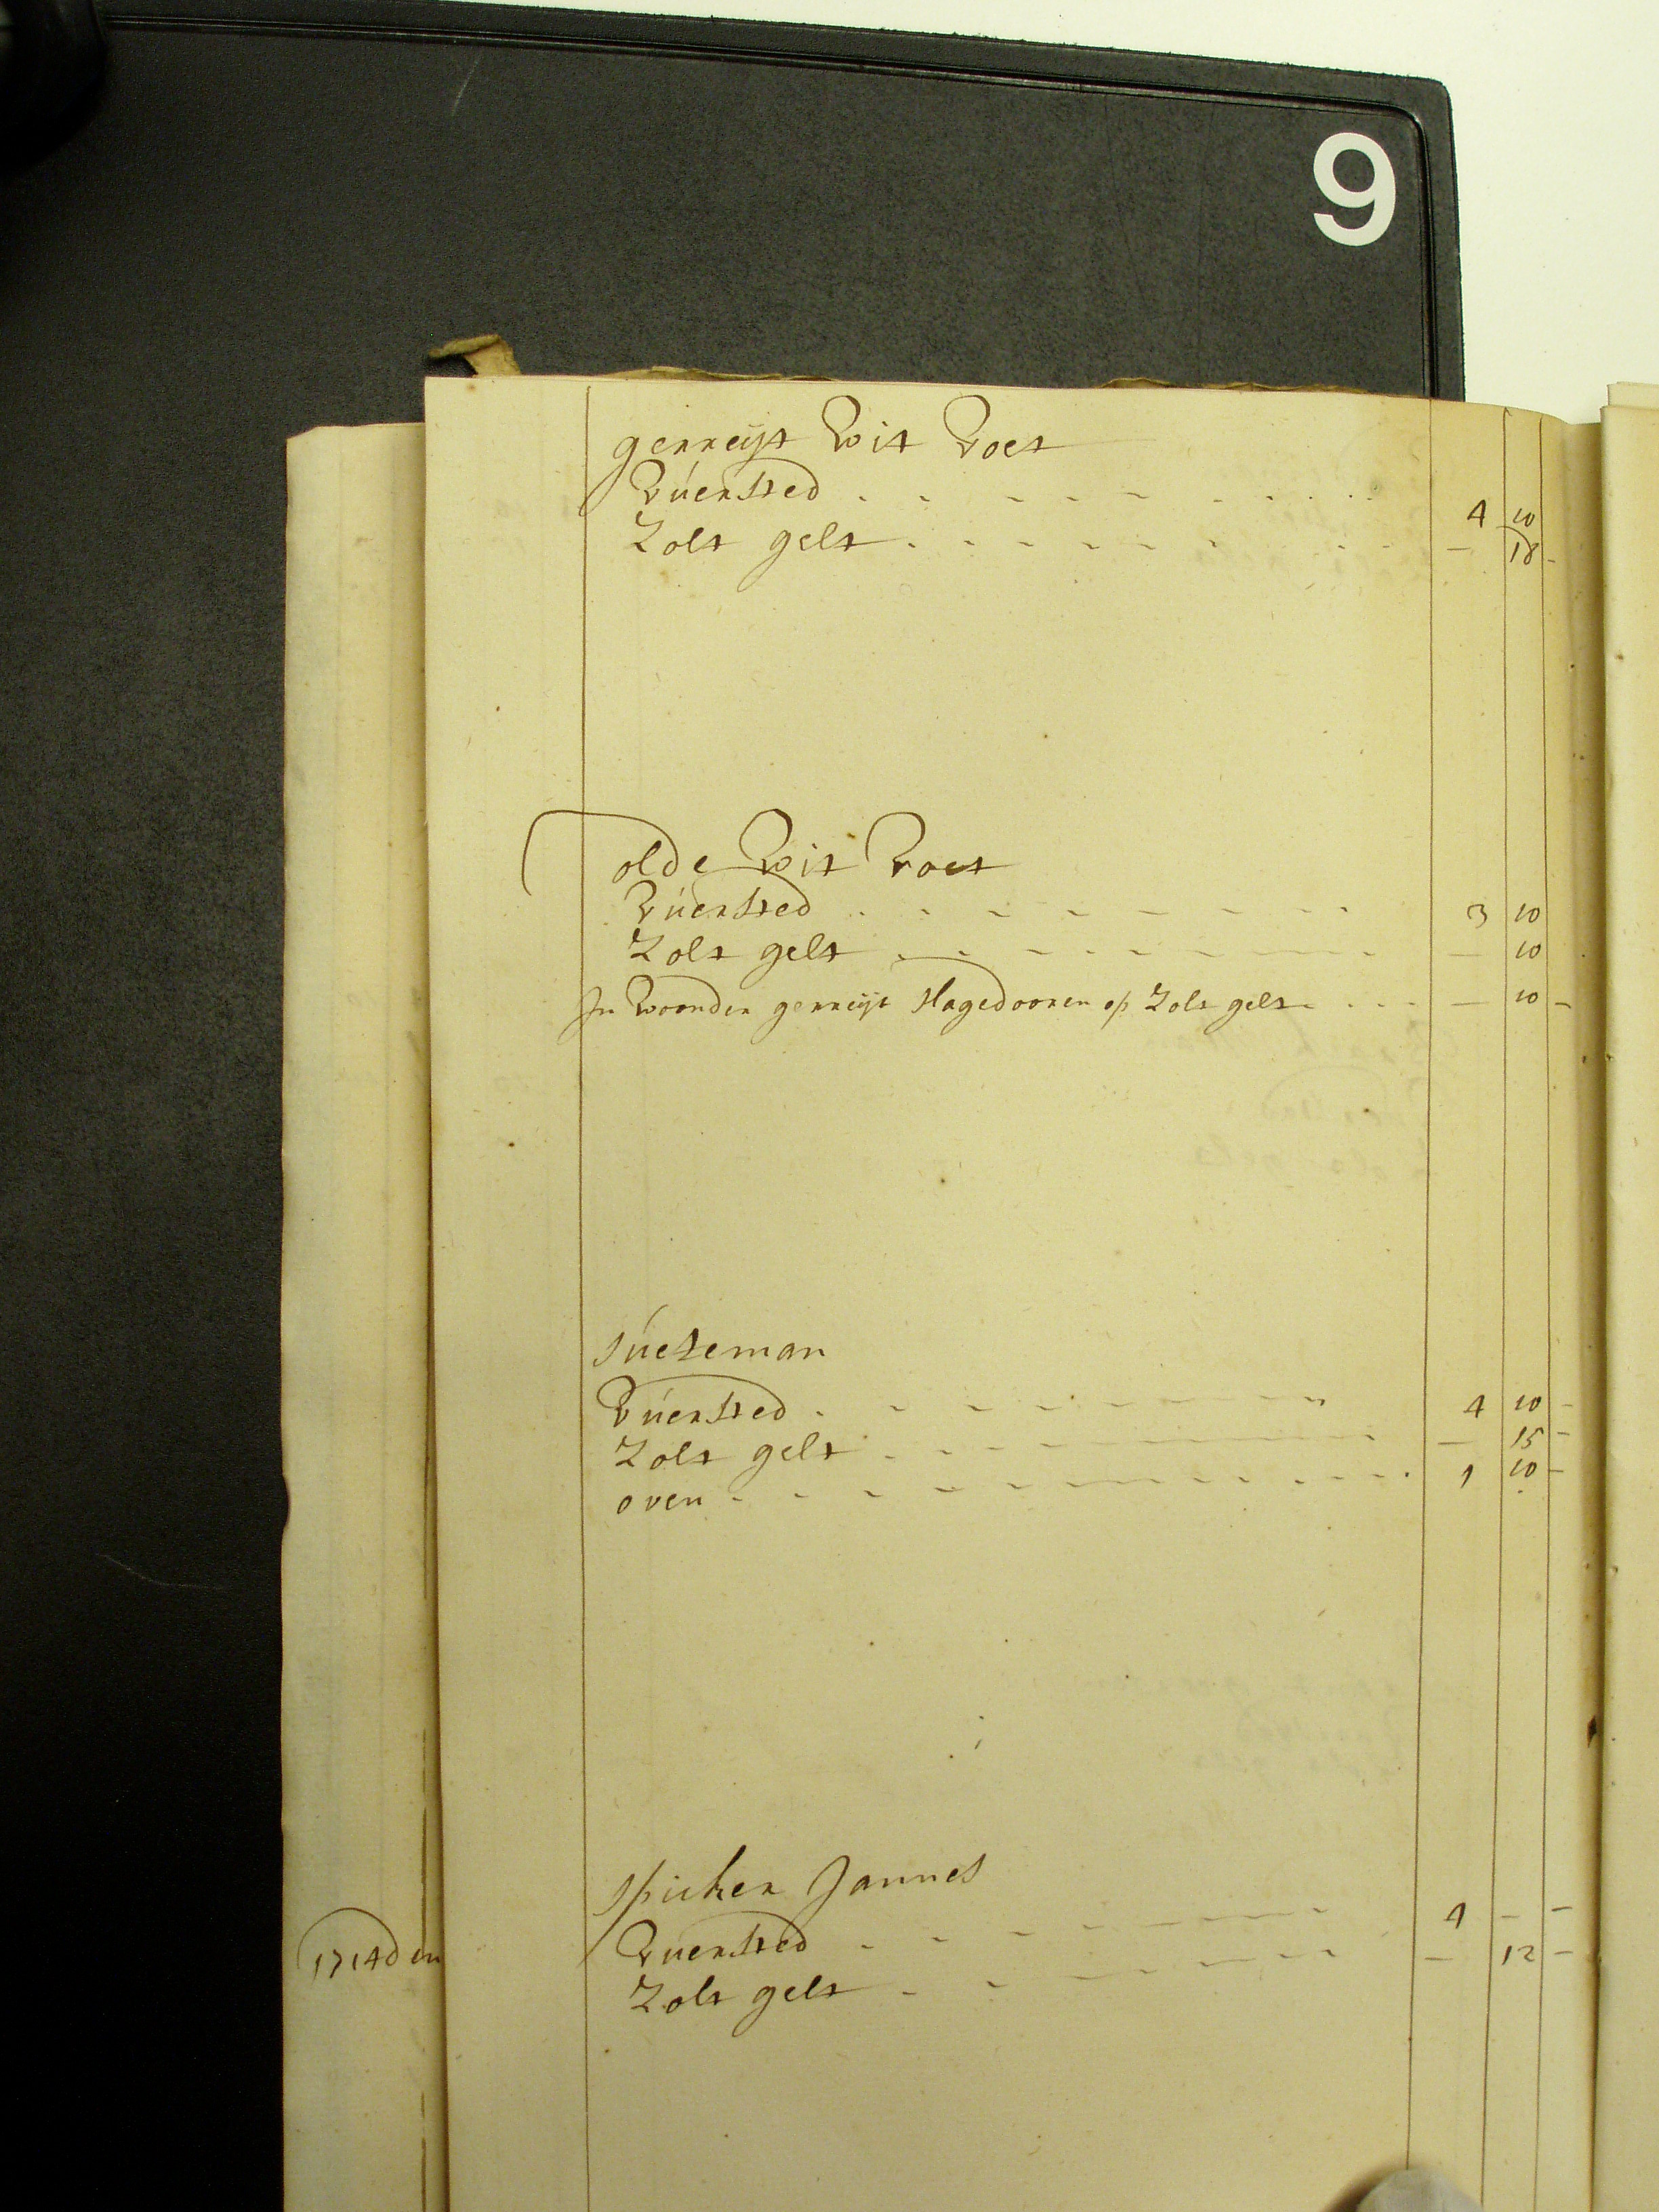 9
gerreijt Wit Voet
Vúersted 4 10
Zolt gelt — 18 -
olde Wit Voet
Vúersted 3 10
Zolt gelt — 10
In Woonder gerreijt Hagedooren op Zolt gelt — 10 -
Súeteman
Vúersted 4 10 -
Zolt gelt — 15 -
oven 1 10 -
Spicker Jannes
Vuersted 4 - -
1714 den
Zolt gelt — 12 -